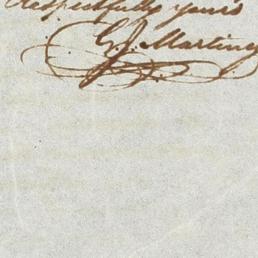 Respectfully yours
G. J. Martiny